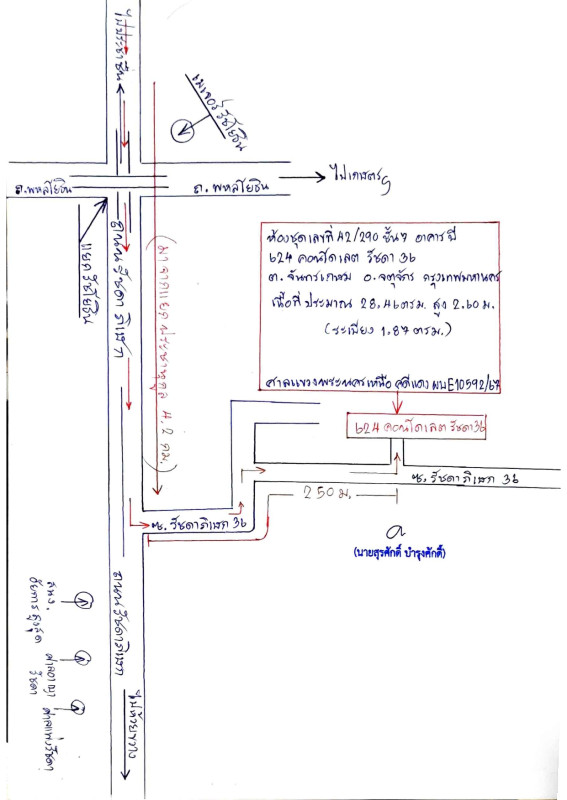 ไปประชาชื่น
เมเจอร์รัชโยธิน
ไปเกษตรฯ
ถ.พหลโยธิน
ถ.พหลโยธิน
แยกรัชโยธิน
ถนนรัชดาภิเษก
(มาจากแยกประชานุกูล 4.2 กม.)
ห้องชุดเลขที่ A2/290 ชั้น 7 อาคาร บี
624 คอนโดเลต รัชดา 36
ต. จันทรเกษม อ.จตุจักร กรุงเทพมหานคร
เนื้อที่ ประมาณ 28.46 ตรม. สูง 2.60 ม.
(ระเบียง 1.87 ตรม.)
ศาลแขวงพระนครเหนือ คดีแดง ผบE10592/67
624 คอนโดเลต รัชดา 36
ซ. รัชดาภิเษก 36
250 ม.
ซ. รัชดาภิเษก 36
(นายสุรศักดิ์ บำรุงศักดิ์)
ถนนรัชดาภิเษก
สนง.
อัยการสูงสุด
ศาลอาญา
รัชดา
ศาลแพ่งรัชดา
ไปห้วยขวาง